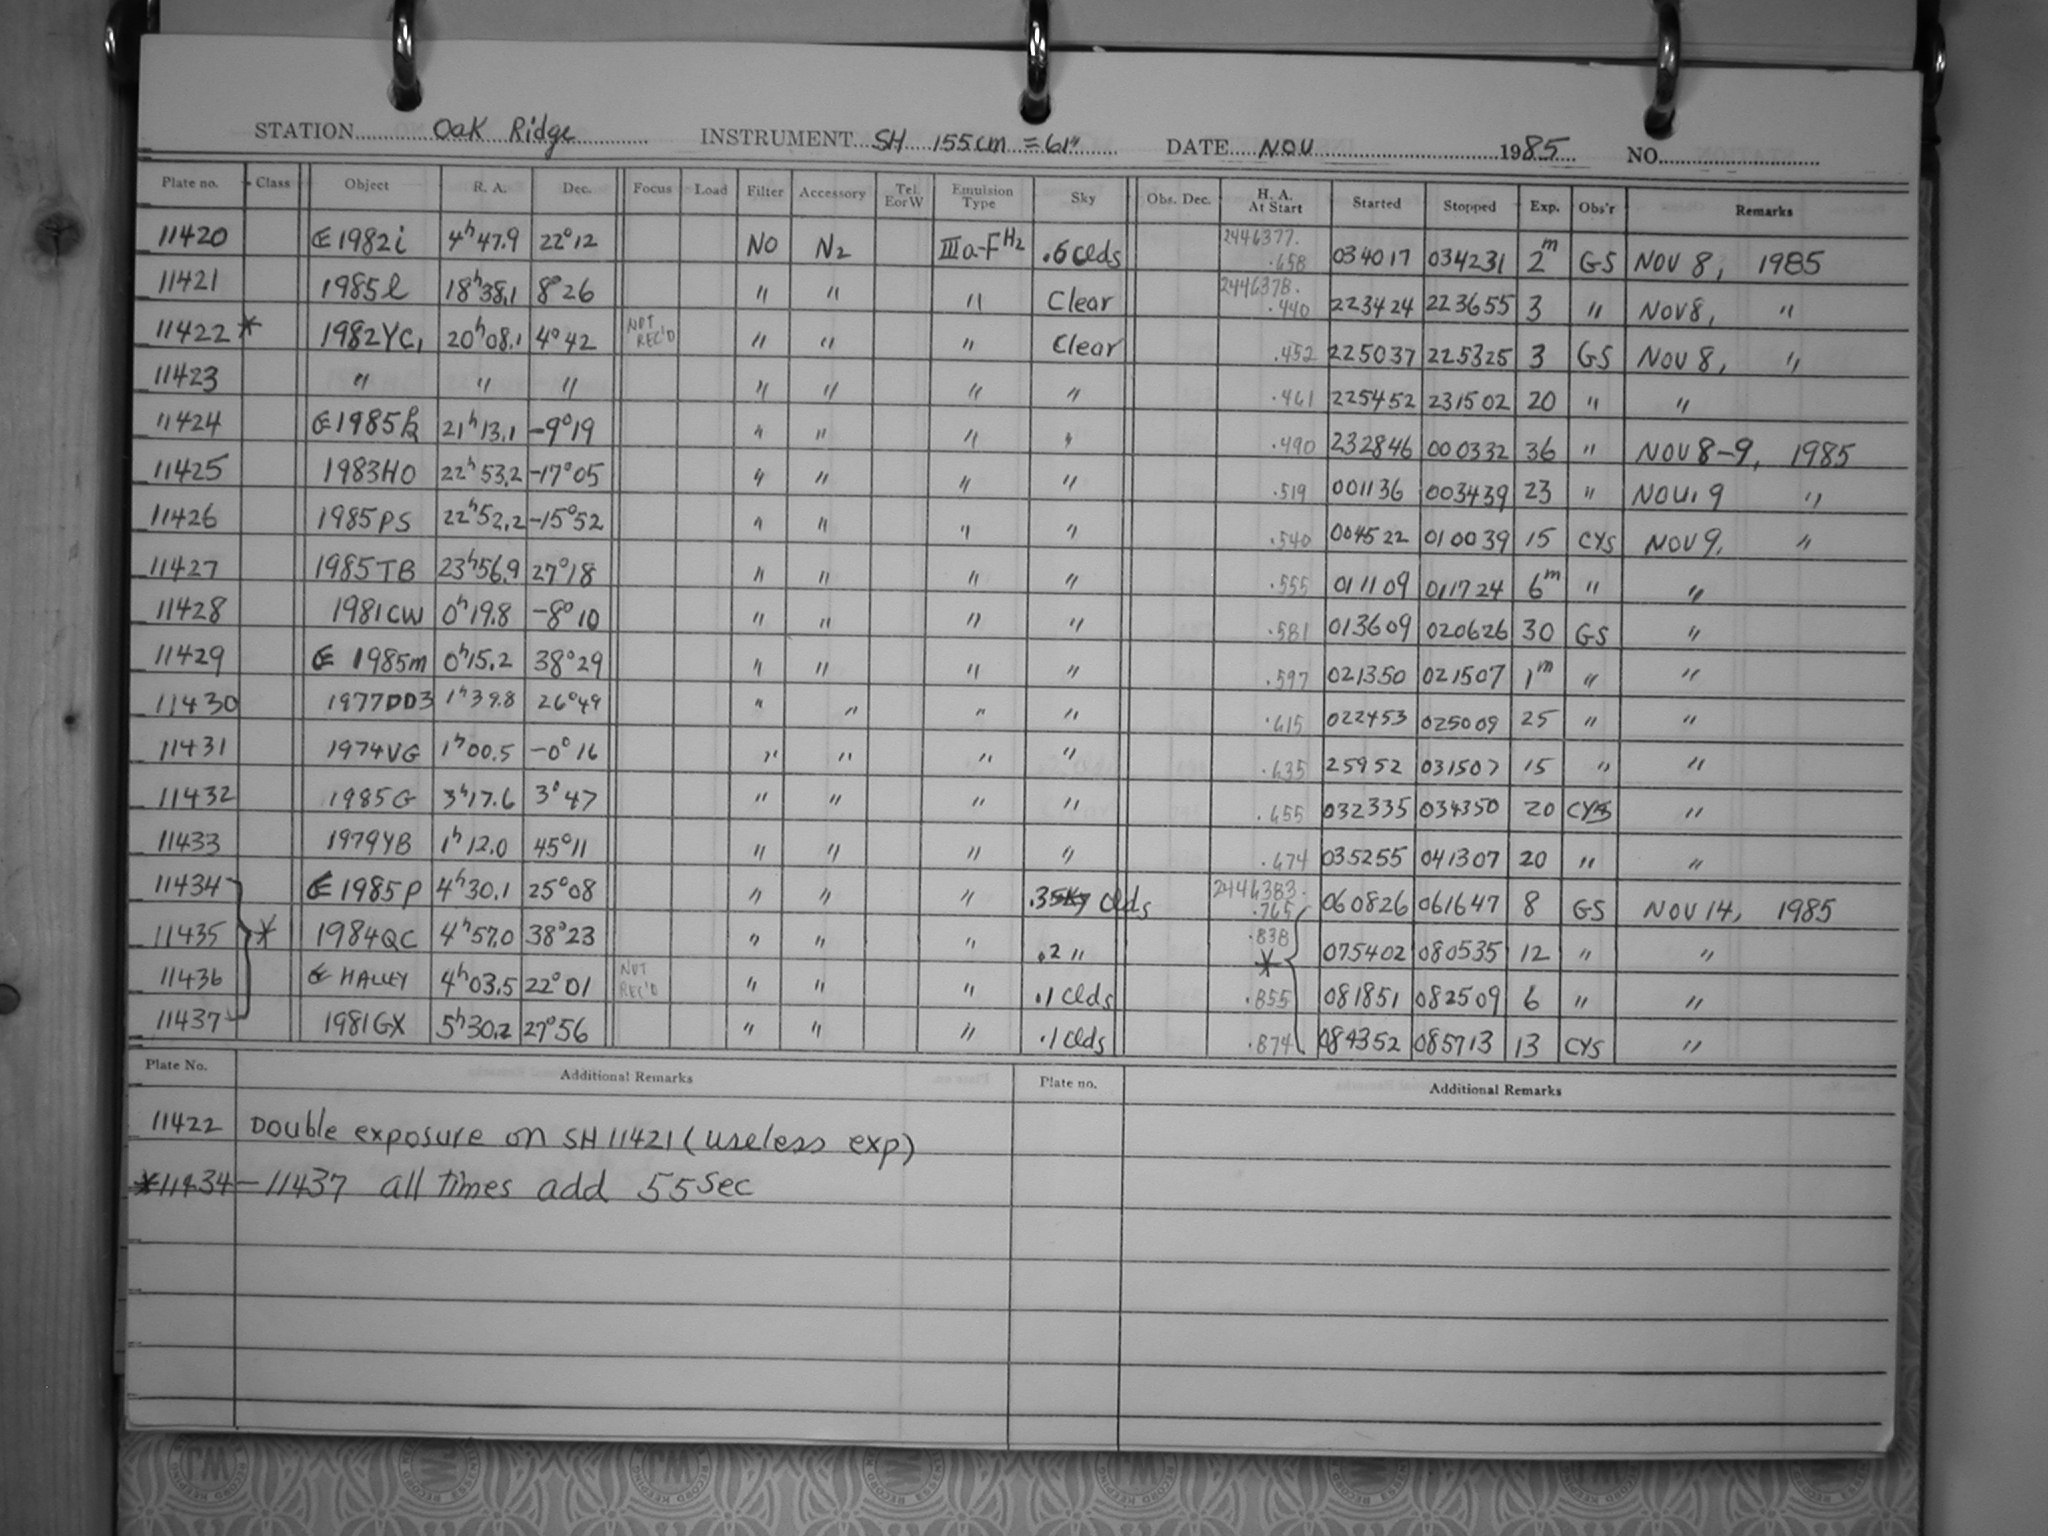 STATION Oak Ridge INSTRUMENT SH 155cm = 61" DATE NOV 1985 NO.
Plate no. Class Object R. A. Dec. Focus Load Filter Accessory Tel. E or W Emulsion Type Sky Obs. Dec. H. A. At Start Started Stopped Exp. Obs'r Remarks
11420 1982i 4h47.9 22°12 NO N2 IIIa-F H2 .6 Clds 2446377. .658 034017 034231 2m GS NOV 8, 1985
11421 1985l 18h38.1 8°26 " " " Clear 2446378. .440 223424 223655 3 " NOV 8, "
11422 * 1982YC1 20h08.1 4°42 NOT REC'D " " " Clear .452 225037 225325 3 GS NOV 8, "
11423 " " " " " " " .461 225452 231502 20 " "
11424 1985h 21h13.1 -9°19 " " " " .490 232846 000332 36 " NOV 8-9, 1985
11425 1983HO 22h53.2 -17°05 " " " " .519 001136 003439 23 " NOV. 9 "
11426 1985PS 22h52.2 -15°52 " " " " .540 004522 010039 15 CYS NOV 9, "
11427 1985TB 23h56.9 27°18 " " " " .555 011109 011724 6m " "
11428 1981CW 0h19.8 -8°10 " " " " .581 013609 020626 30 GS "
11429 1985m 0h15.2 38°29 " " " " .597 021350 021507 1m " "
11430 1977DD3 1h39.8 26°49 " " " " .615 022453 025009 25 " "
11431 1974VG 1h00.5 -0°16 " " " " .635 25952 031507 15 " "
11432 1985G 3h17.6 3°47 " " " " .655 032335 034350 20 CYS "
11433 1979YB 1h12.0 45°11 " " " " .674 035255 041307 20 " "
11434 1985P 4h30.1 25°08 " " " .3 Clds 2446383. .765 060826 061647 8 GS NOV 14, 1985
11435 * 1984QC 4h57.0 38°23 " " " .2 " .838 * 075402 080535 12 " "
11436 HALLEY 4h03.5 22°01 NOT REC'D " " " .1 Clds .855 081851 082509 6 " "
11437 1981GX 5h30.2 27°56 " " " .1 Clds .874 084352 085713 13 CYS "
Plate No. Additional Remarks Plate no. Additional Remarks
11422 Double exposure on SH 11421 (useless exp)
*11434-11437 all times add 55 sec